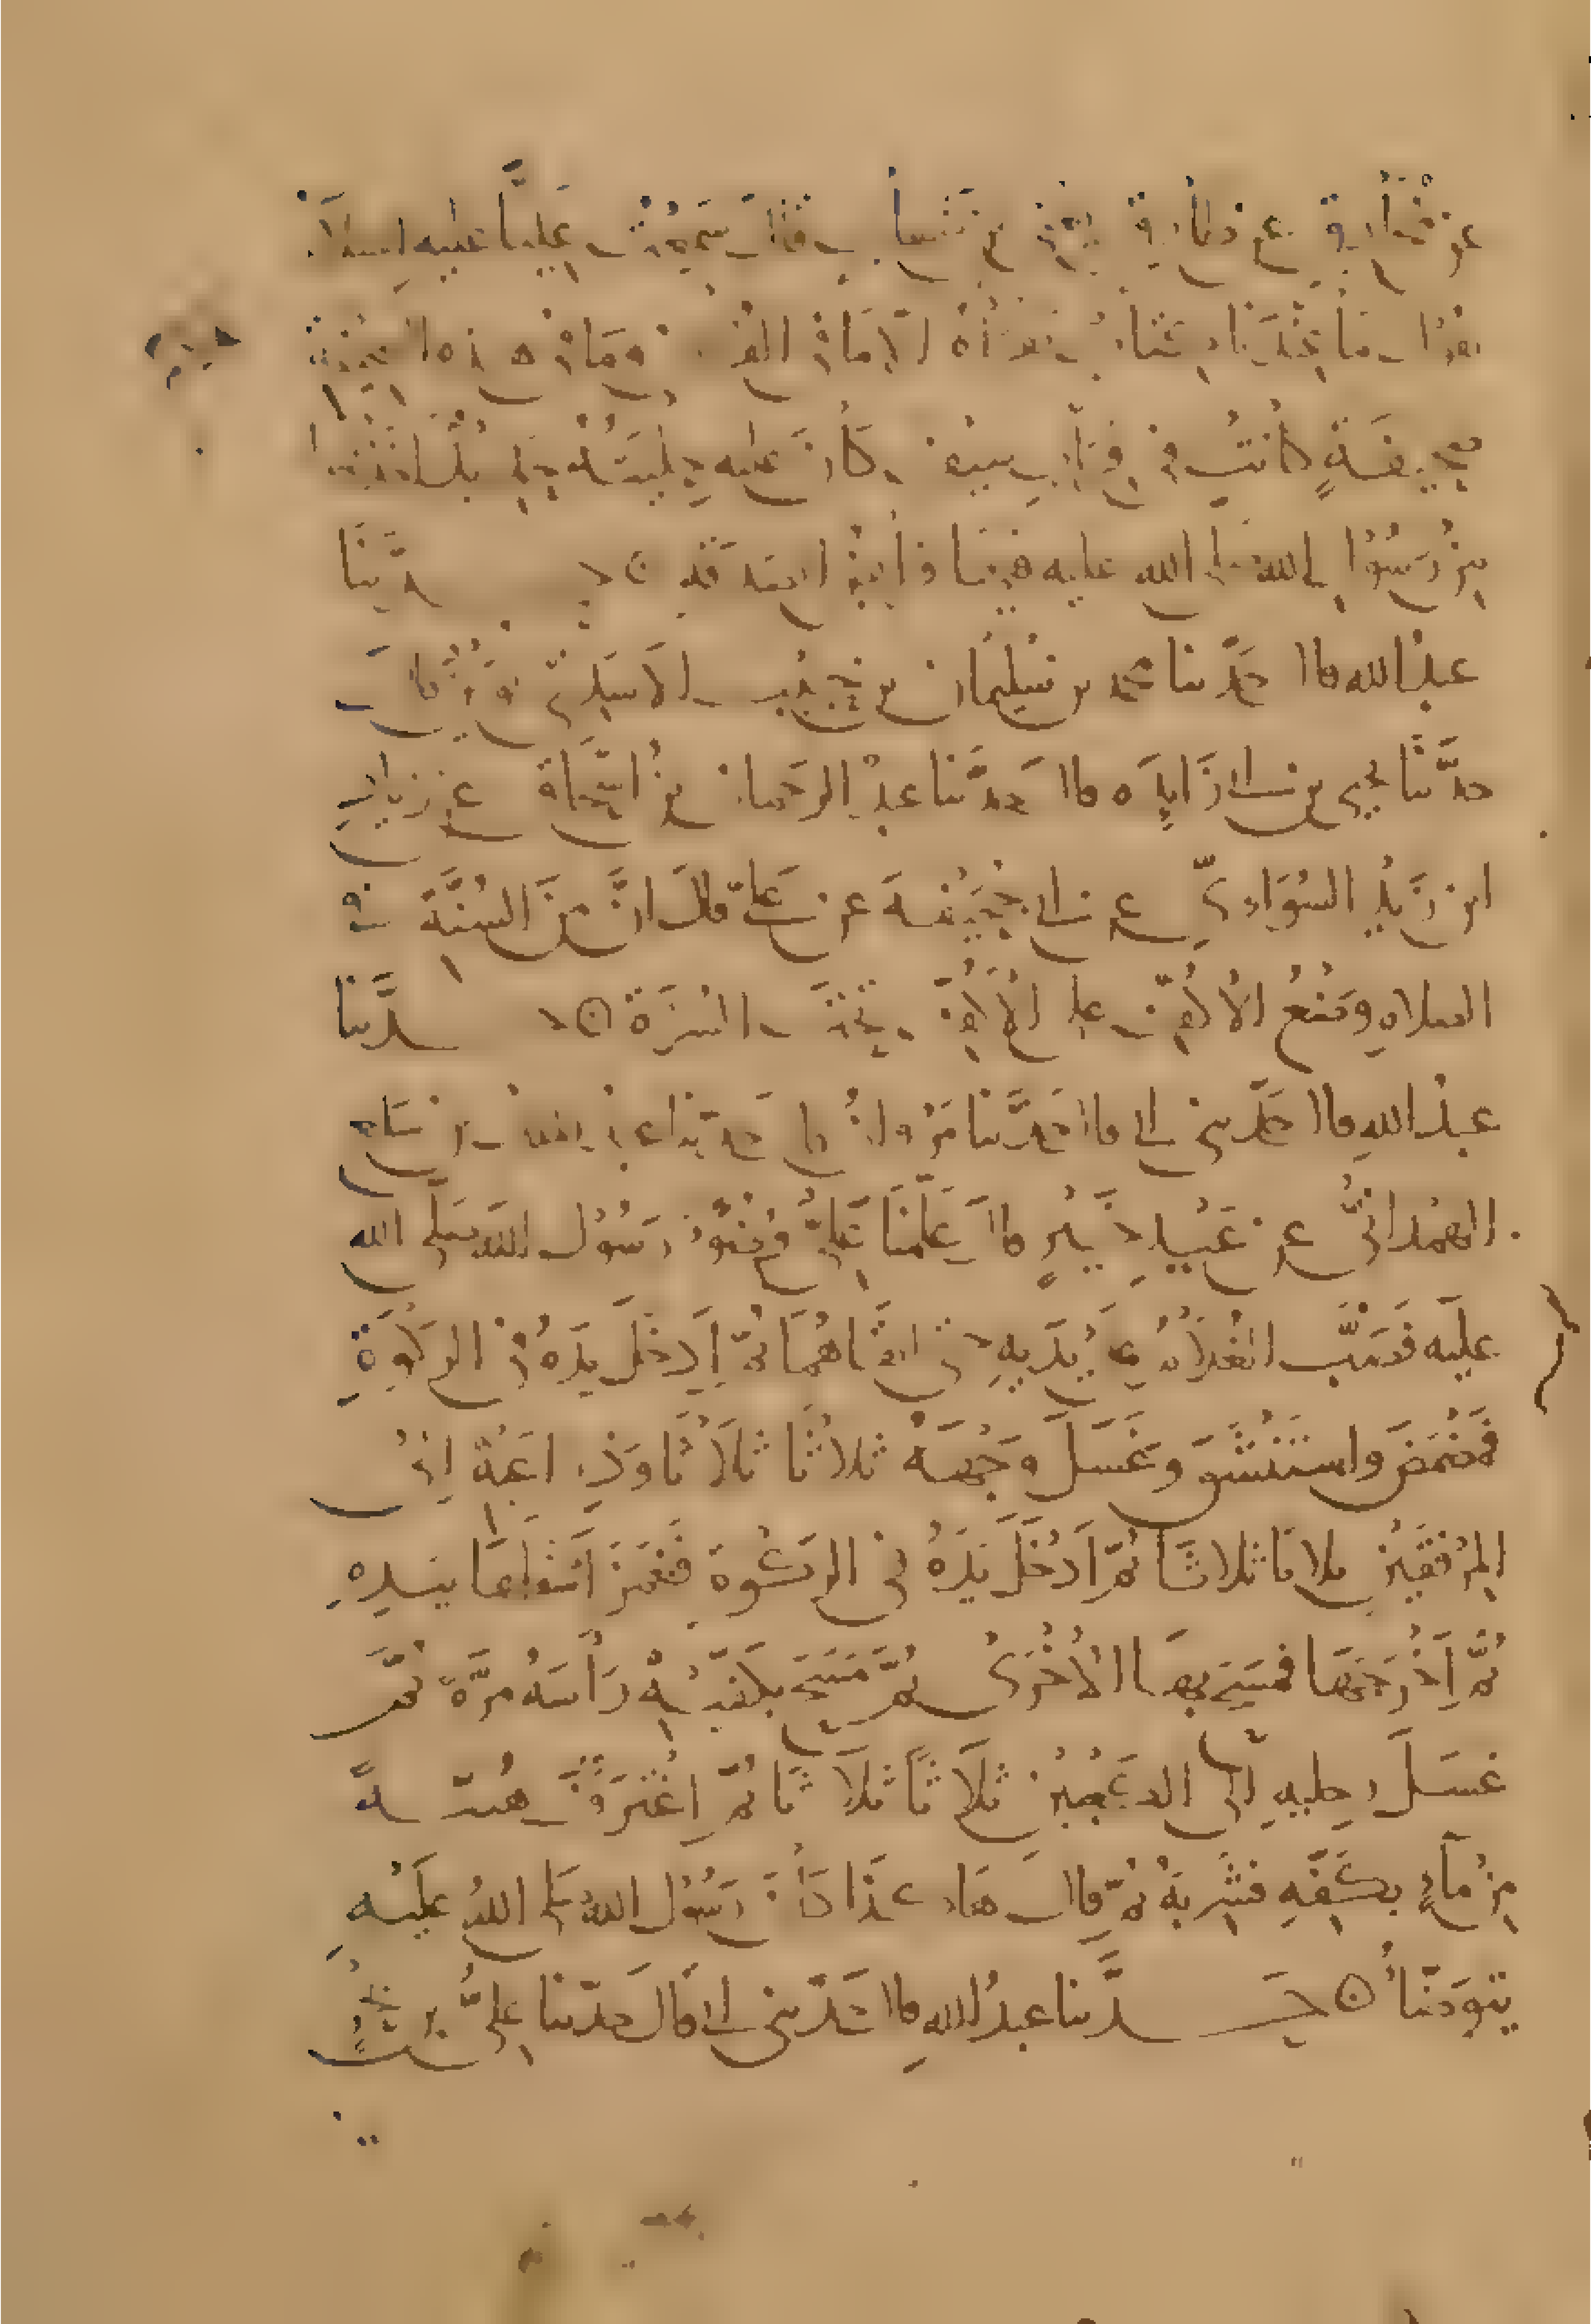 عن مخارق عن طارق بن شهاب قال سمعت عليا عليه السلام
يقول ما عندنا كتاب نقرأه الا ما في القرآن وما في هذه الصحيفة
صحيفةٍ كانت في قراب سيف كان عليه حليته حديد اخذتها
من رسول الله صلى الله عليه فيها فرايض الصدقة ۞ حدَّثنا
عبدُ الله قال حدَّثنا محمد بن سُليمان بن حبيب الاسدي لوين قال
حدَّثنا يحيى بن ابي زَايِدَه قال حَدَّثنا عبدُ الرحمان بن اسحاق عن زياد
ابن زَيْدٍ السُوَاءيّ عن ابي جُحَيْفَهَ عن عَليّ قال انَّ مِنَ السُنَّةِ في
الصلاةِ وضعُ الأكُفّ على الأكُفّ تحت السُرَّة ۞ حدَّثنا
عبدُ اللهِ قال حدّثني ابي قال حدَّثنا مَرْوانُ قال حَدّثنا عبد الملك بن سَلْع
الهمْدانيُّ عن عَبْدِ خَيْرٍ قال عَلَّمَنَا عَليٌّ وُضُوْءَ رَسُوْل الله صلَّى الله
عليَه فَصَبَّ الغُلامُ على يَدَيهِ حتى انقَاهُمَا ثمّ اَدخَلَ يَدَهُ في الركوَةِ
فمَضْمَضَ واستَنْشَقَ وغَسَلَ وَجْهَهُ ثلاثًا ثلَاثًا وَذِراعَيْهِ الى
المِرْفَقَيْنِ ثلاثا ثلاثًا ثمَّ اَدْخَلَ يَدَهُ في الركْوةِ فَغَمَزَ اَسْفَلَهَا بيَدِهِ
ثمَّ اَخْرَجَهَا فمسَحَ بهَا الأُخْرَى ثمَّ مَسَحَ بكَفَّيْهِ رَأسَهُ مرَّةً ثمَّ
غسَلَ رجليهِ الى الكعْبَيْنِ ثلَاثًا ثلَاثًا ثمّ اغْتَرَفَ هُنَيَّةً
مِن ماءٍ بكَفِّهِ فشَرِبَهُ ثمّ قال هَاكَذَا كَانَ رَسُوْل الله صَلى اللهُ عليْهِ
يتوَضّأُ ۞ حَدَّثنا عبدُ اللهِ قال حَدّثني ابي قَال حدّثنا عليُّ بن بحرٍ